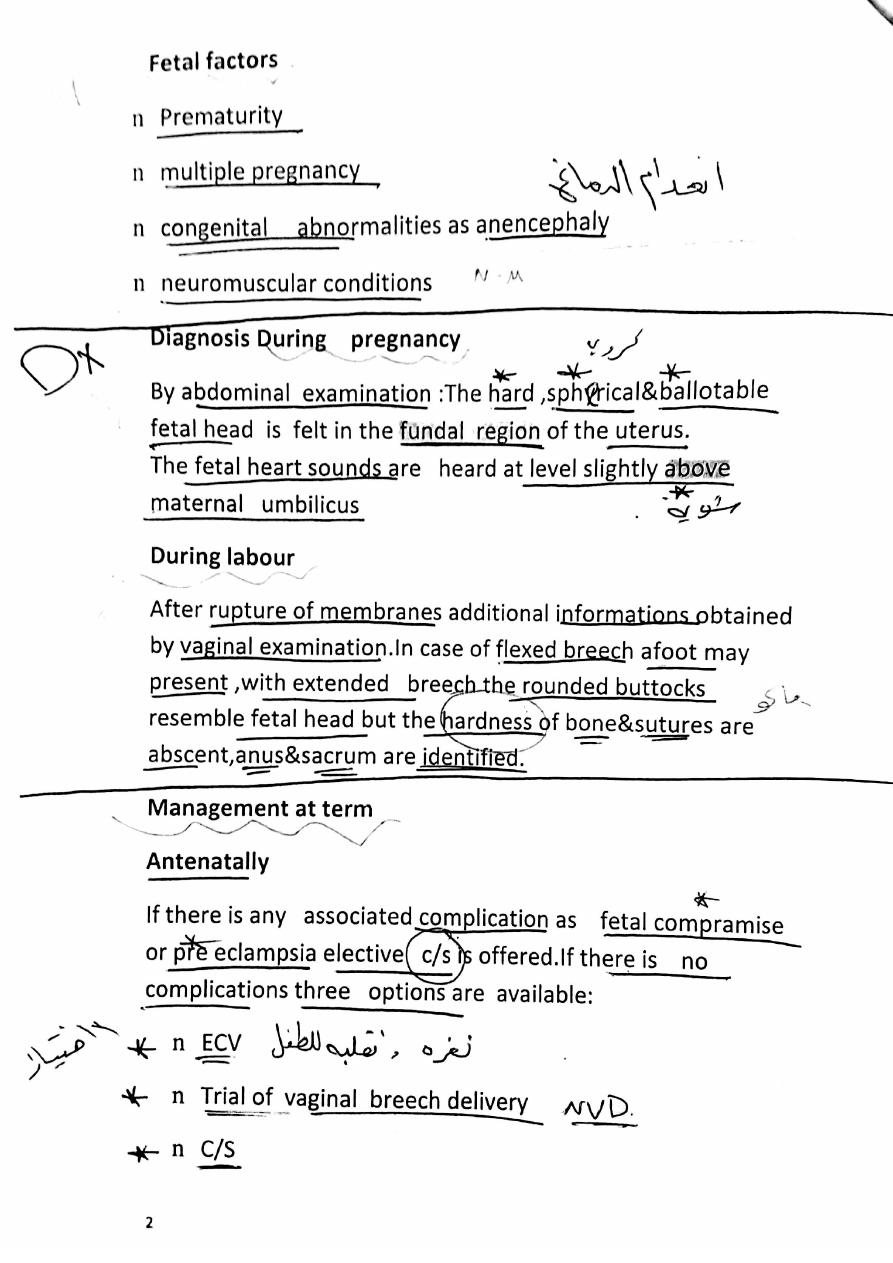 Fetal factors
n Prematurity
n multiple pregnancy
انعدام الدماغ
n congenital abnormalities as anencephaly
n neuromuscular conditions N.M
Diagnosis During pregnancy
Dx
كروية
By abdominal examination :The hard ,spherical&ballotable
fetal head is felt in the fundal region of the uterus.
The fetal heart sounds are heard at level slightly above
maternal umbilicus شوية
During labour
After rupture of membranes additional informations obtained
by vaginal examination.In case of flexed breech afoot may
present ,with extended breech the rounded buttocks
resemble fetal head but the hardness of bone&sutures are
abscent,anus&sacrum are identified.
Management at term
Antenatally
If there is any associated complication as fetal compramise
or pre eclampsia elective c/s is offered.If there is no
complications three options are available:
n ECV للطفل
n Trial of vaginal breech delivery NVD.
n C/S
2